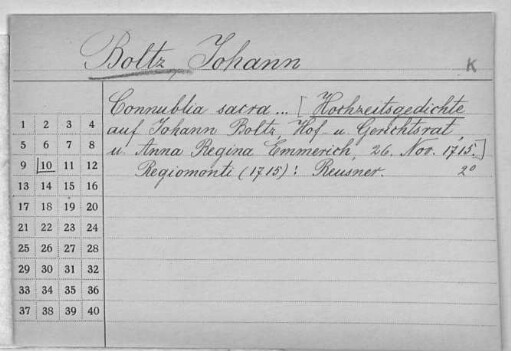 Boltz, Johann
K
Connublia sacra ... [Hochzeitsgedichte
auf Johann Boltz, Hof- u. Gerichtsrat,
u. Anna Regina Emmerich, 26. Nov. 1715.]
Regiomonti (1715): Reusner. 2°
1 2 3 4
5 6 7 8
9 10 11 12
13 14 15 16
17 18 19 20
21 22 23 24
25 26 27 28
29 30 31 32
33 34 35 36
37 38 39 40